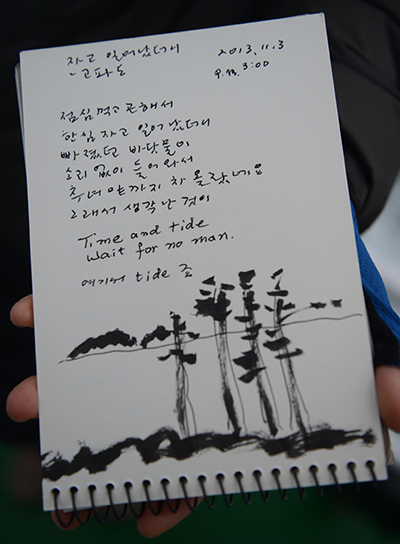 자고 일어났더니
2013.11.3
P.M. 3:00
점심먹고 곤해서
한심 자고 일어났더니
빠졌던 바닷물이
소리없이 들어와서
차 올랐네요
그래서 생각난 것이
Time and tide
wait for no man.
여기서 tide 죠